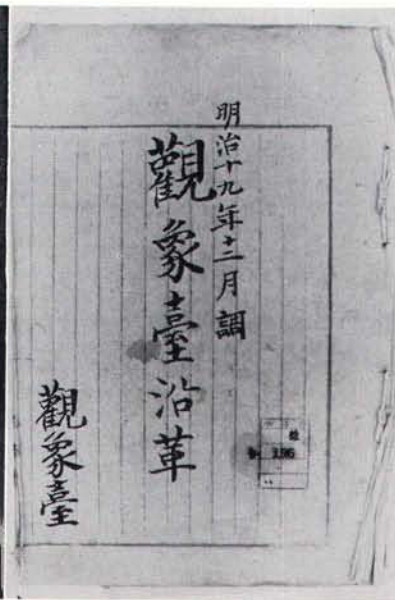 明治十九年十二月調
觀象臺沿革
觀象臺